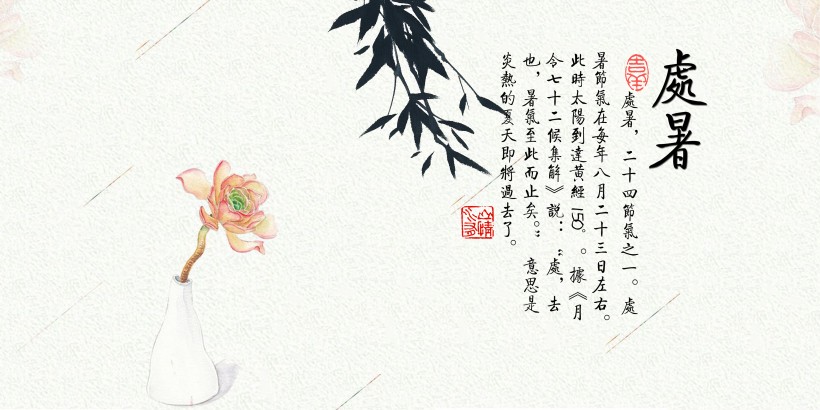 處暑
吉羊
處暑，二十四節氣之一。處
暑節氣在每年八月二十三日左右。
此時太陽到達黃經150°。據《月
令七十二候集解》說：“處，去
也，暑氣至此而止矣。”意思是
炎熱的夏天即將過去了。